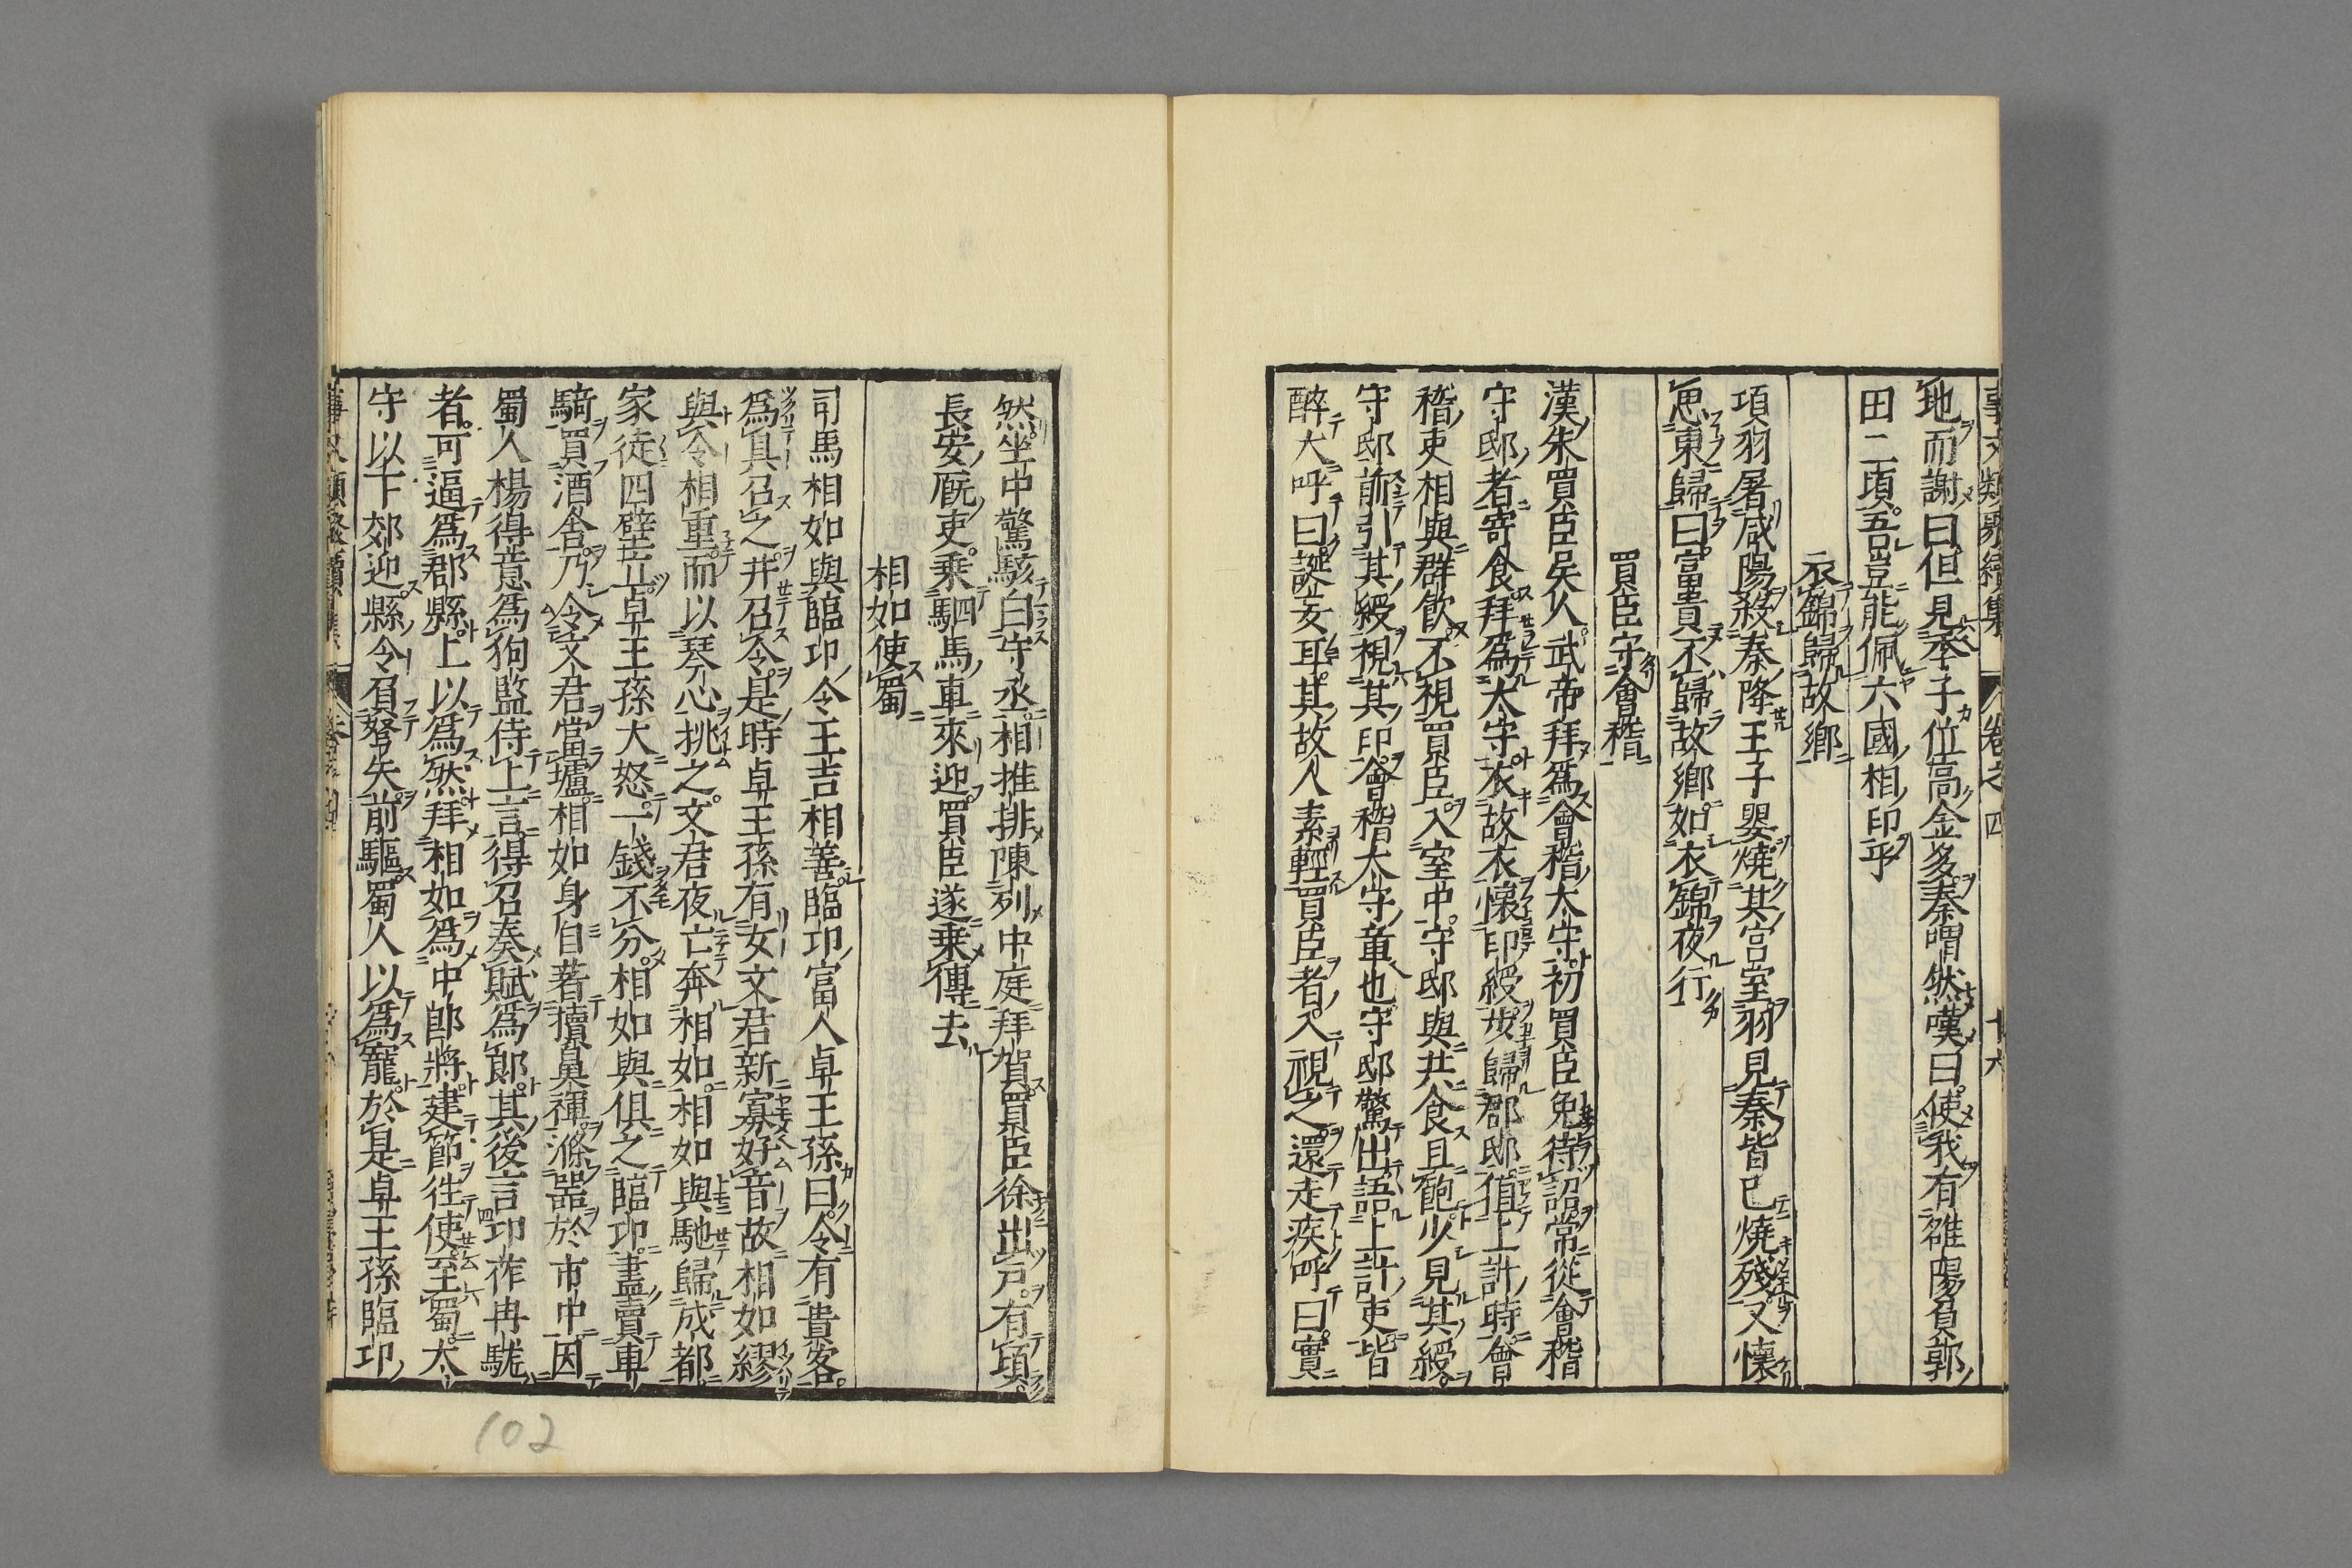 事文類聚續集 卷之四 十六
地而謝曰但見季子位高金多秦喟然嘆曰使我有雒陽負郭
田二頃吾豈能佩六國相印乎
衣錦歸故鄉
項羽屠咸陽殺秦降王子嬰燒其宮室羽見秦皆已燒殘又懷
思東歸曰富貴不歸故鄉如衣錦夜行
買臣守會稽
漢朱買臣吳人武帝拜爲會稽太守初買臣免待詔常從會稽
守邸者寄食拜爲太守衣故衣懷印綬步歸郡邸值上計時會
稽吏相與群飲不視買臣入室中守邸與共食且飽少見其綬
守邸前引其綬視其印會稽太守章也守邸驚出語上計吏皆
醉大呼曰誕妄耳其故人素輕買臣者入視之還走疾呼曰實
然坐中驚駭白守丞相推排陳列中庭拜賀買臣徐出戶有頃
長安廐吏乘駟馬車來迎買臣遂乘傳去
相如使蜀
司馬相如與臨邛令王吉相善臨邛富人卓王孫曰令有貴客
爲具召之并召令是時卓王孫有女文君新寡好音故相如繆
與令相重而以琴心挑之文君夜亡奔相如相如與馳歸成都
家徒四壁立卓王孫大怒一錢不分相如與俱之臨邛盡賣車
騎買酒舍乃令文君當壚相如身自著犢鼻褌滌器於市中因
蜀人楊得意爲狗監侍上言得召奏賦爲郎其後言邛筰冉駹
者可通爲郡縣上以爲然拜相如爲中郎將建節往使至蜀太
守以下郊迎縣令負弩矢前驅蜀人以爲寵於是卓王孫臨邛
102